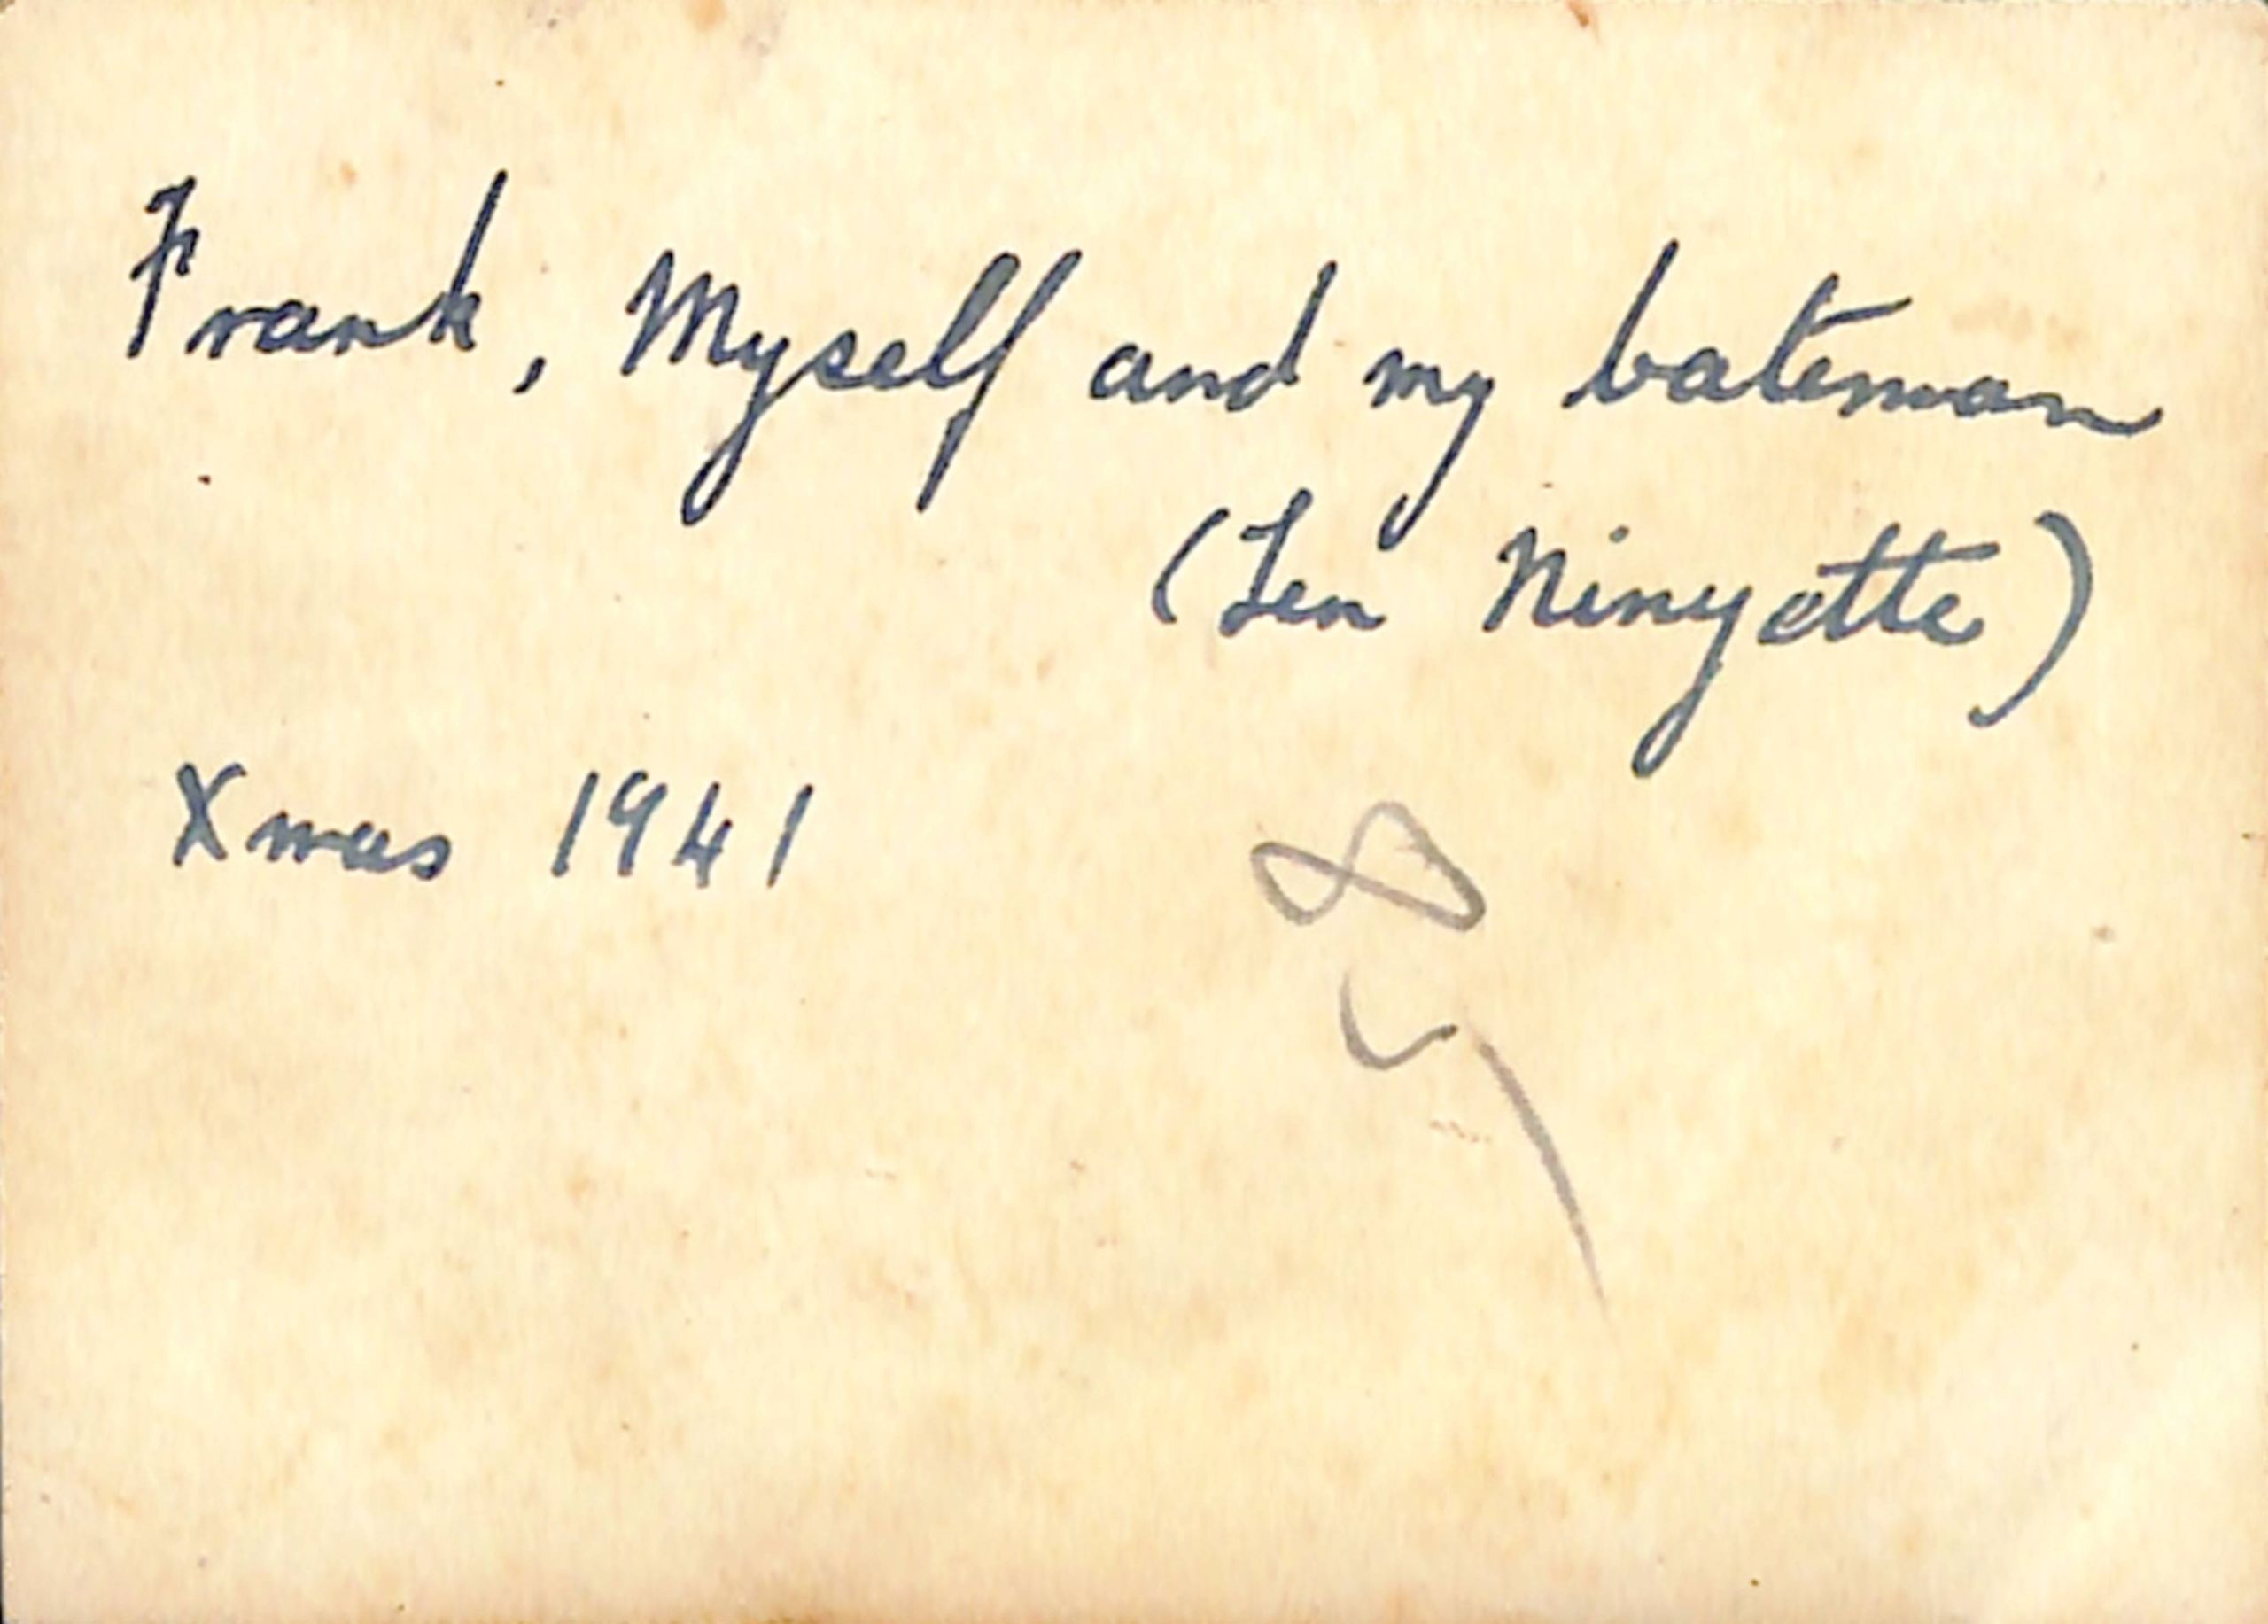 Frank, Myself and my bateman
(Len Ninyette)
Xmas 1941